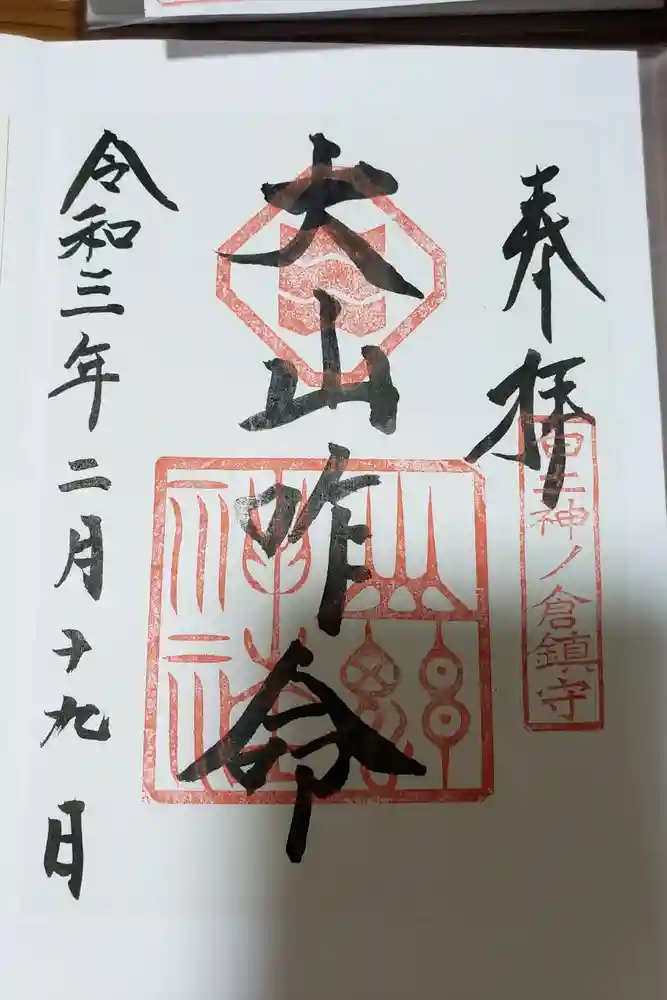 奉拝
白土神ノ倉鎮守
大山咋命
令和三年二月十九日